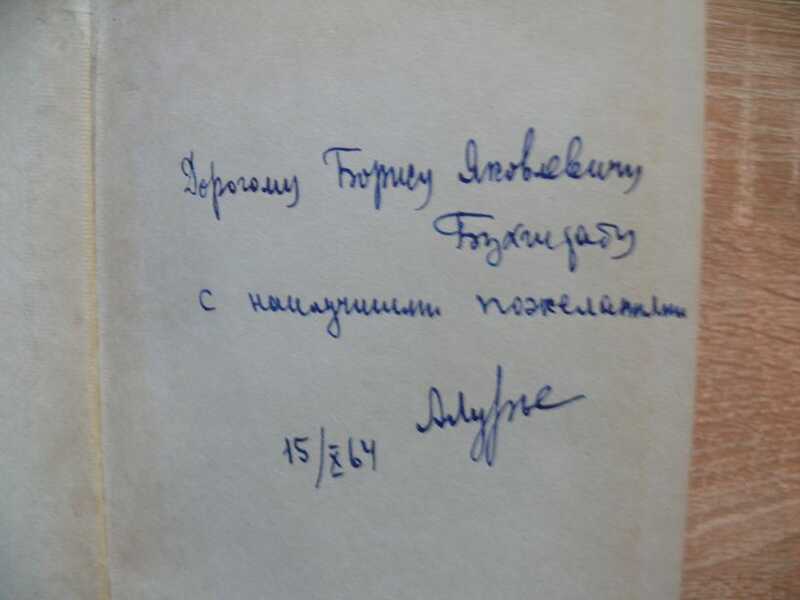 Дорогому Борису Яковлевичу
Бухштабу
с наилучшими пожеланиями
АЛурье
15/X 64